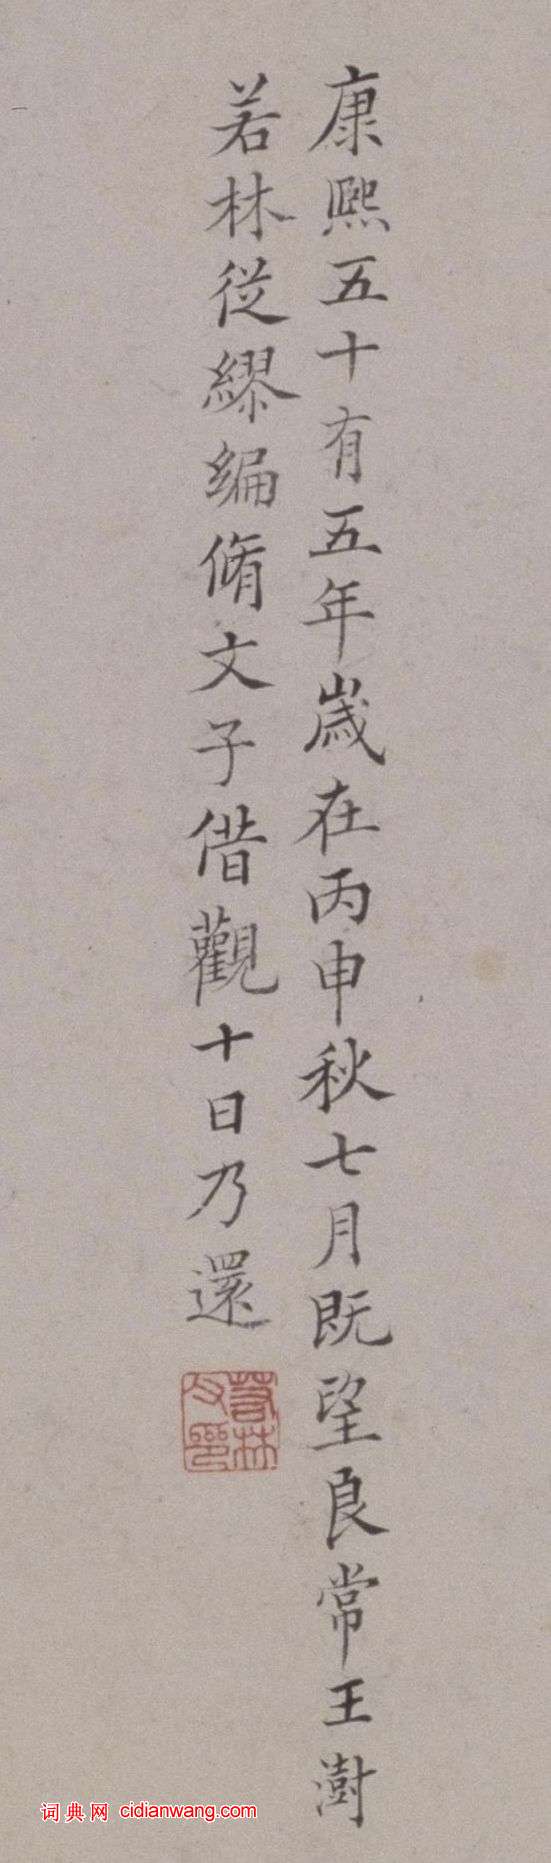 康熙五十有五年歲在丙申秋七月既望良常王澍
若林從繆編脩文子借觀十日乃還
若林
词典网 cidianwang.com